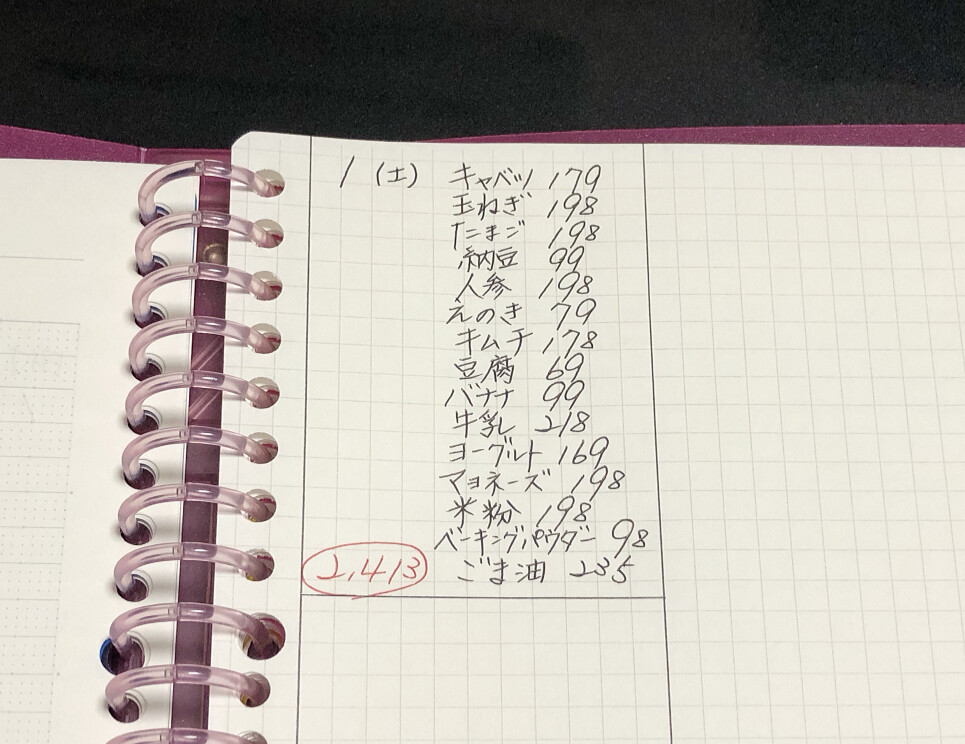 1 (土) キャベツ 179
玉ねぎ 198
たまご 198
納豆 99
人参 198
えのき 79
キムチ 178
豆腐 69
バナナ 99
牛乳 218
ヨーグルト 169
マヨネーズ 198
米粉 198
ベーキングパウダー 98
2,413 ごま油 235